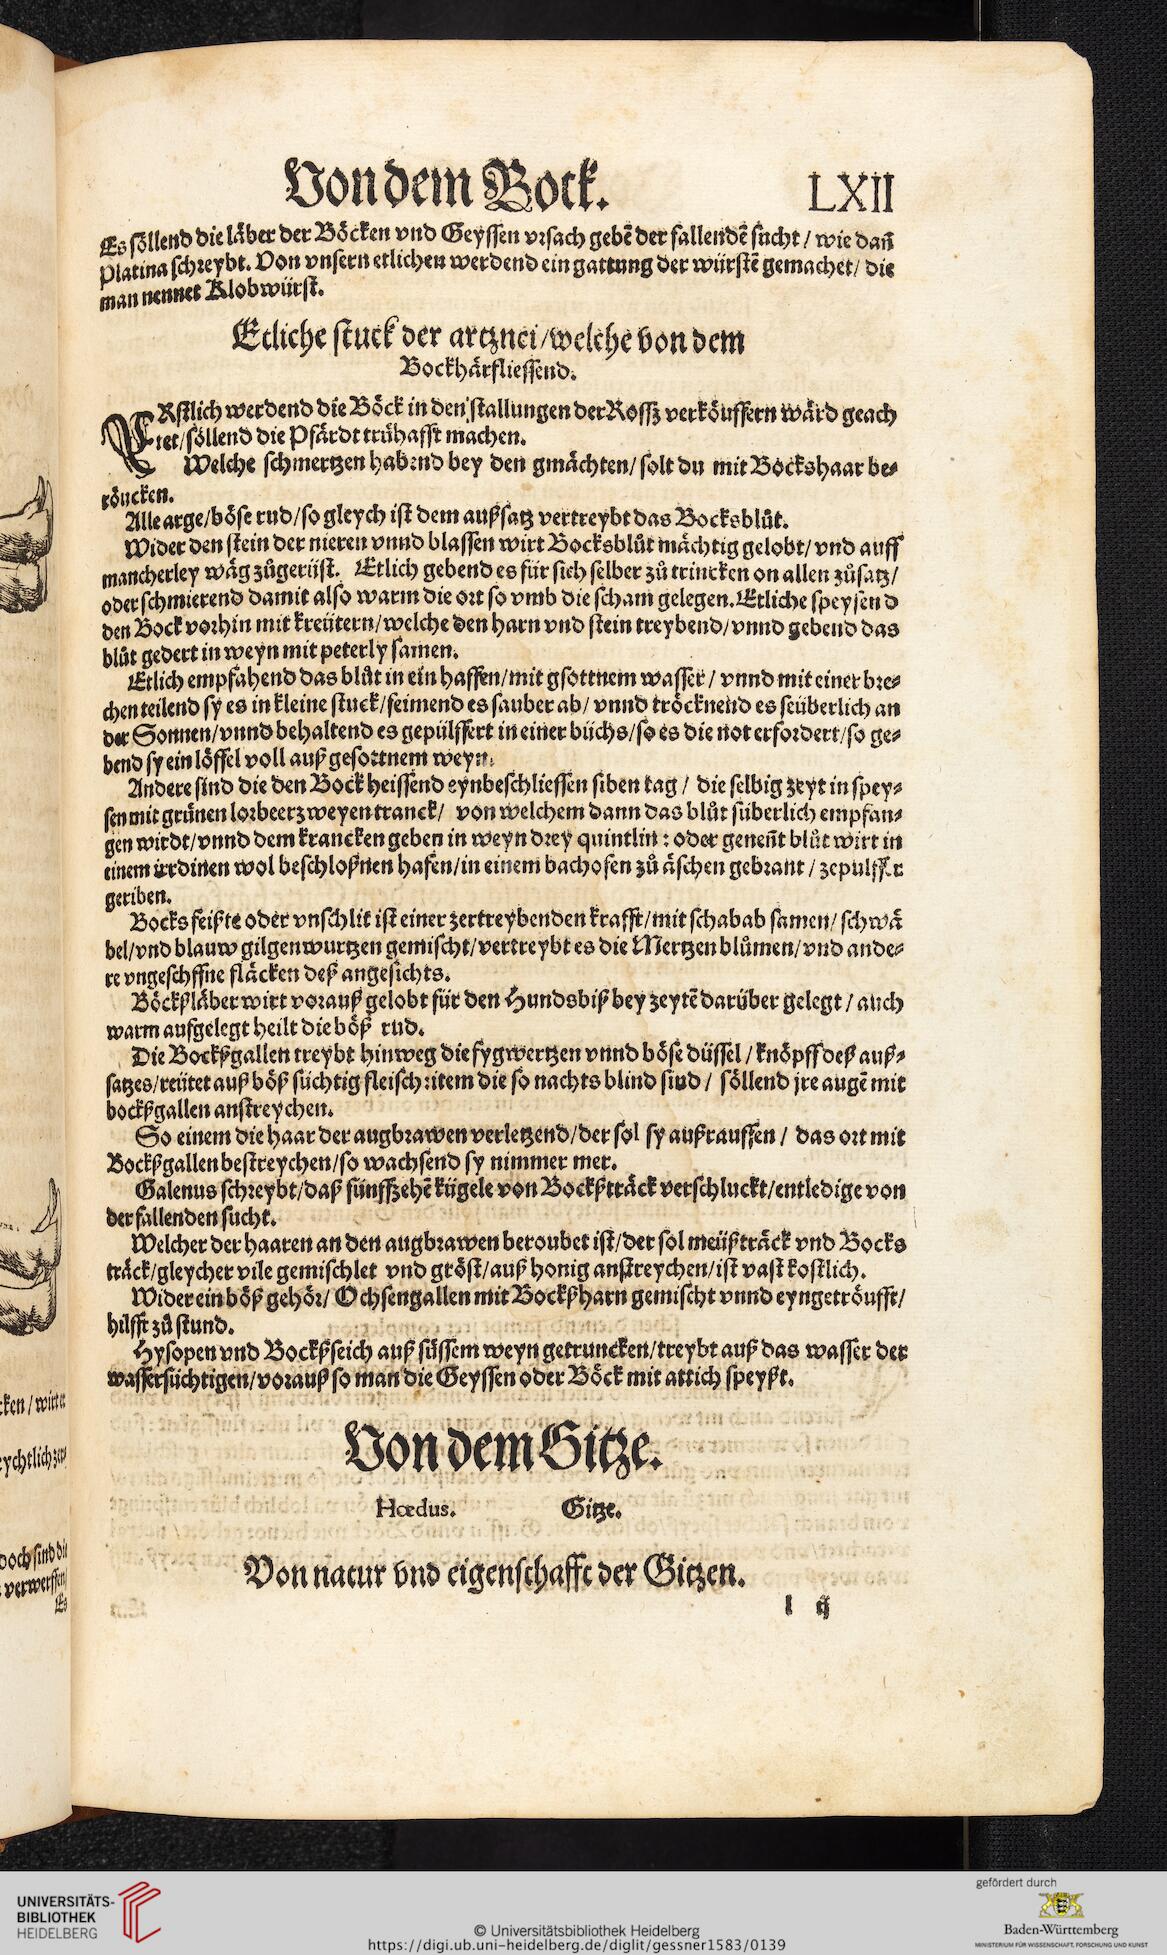 Von dem Bock. LXII
Es söllend die läber der Böcken vnd Geyssen vrsach gebē der fallendē sucht / wie dañ
Platina schreybt. Von vnsern etlichen werdend ein gattung der würstē gemachet / die
man nennet Klobwürst.
Etliche stuck der artznei / welche von dem
Bock härfliessend.
ERstlich werdend die Böck in den stallungen der Rossz verköuffern wärd geach
tet / söllend die Pfärdt trühafft machen.
Welche schmertzen habend bey den gmächten / solt du mit Bockshaar be⸗
röucken.
Alle arge / böse rud / so gleych ist dem außsatz vertreybt das Bocksblůt.
Wider den stein der nieren vnnd blassen wirt Bocksblůt mächtig gelobt / vnd auff
mancherley wäg zůgerüst. Etlich gebend es für sich selber zů trincken on allen zůsatz /
oder schmierend damit also warm die ort so vmb die scham gelegen. Etliche speysend
den Bock vorhin mit kreütern / welche den harn vnd stein treybend / vnnd gebend das
blůt gedert in weyn mit peterly samen.
Etlich empfahend das blůt in ein haffen / mit gsottnem wasser / vnnd mit einer bre⸗
chen teilend sy es in kleine stuck / feimend es sauber ab / vnnd tröcknend es seüberlich an
der Sonnen / vnnd behaltend es gepülffert in einer büchs / so es die not erfordert / so ge⸗
bend sy ein löffel voll auß gesottnem weyn.
Andere sind die den Bock heissend eynbeschliessen siben tag / die selbig zeyt in spey⸗
sen mit grünen lorbeerzweyen tranck / von welchem dann das blůt süberlich empfan⸗
gen wirdt / vnnd dem krancken geben in weyn drey quintlin : oder geneñt blůt wirt in
einem irrdinen wol beschloßnen hafen / in einem bachofen zů äschen gebrant / zepulffer
geriben.
Bocks feißte oder vnschlit ist einer zertreybenden krafft / mit schabab samen / schwä
bel / vnd blauw gilgenwurtzen gemischt / vertreybt es die Mertzenblůmen / vnd ande⸗
re vngeschffne fläcken deß angesichts.
Böckßläber wirt vorauß gelobt für den Hundsbiß bey zeytē darüber gelegt / auch
warm aufgelegt heilt die böß rud.
Die Bockßgallen treybt hinweg die fygwertzen vnnd böse düssel / knöpff deß auß⸗
satzes / reütet auß böß süchtig fleisch : item die so nachts blind sind / söllend jre augē mit
bockßgallen anstreychen.
So einem die haar der augbrawen verletzend / der sol sy außrauffen / das ort mit
Bockßgallen bestreychen / so wachsend sy nimmer mer.
Galenus schreybt / daß fünffzehē kügele von Bockßträck verschluckt / entledige von
der fallenden sucht.
Welcher der haaren an den augbrawen beroubet ist / der sol meüßträck vnd Bocks
träck / gleycher vile gemischlet vnd gröst / auß honig anstreychen / ist vast kostlich.
Wider ein böß gehör / Ochsengallen mit Bockßharn gemischt vnnd eyngetröufft /
hilfft zů stund.
Hysopen vnd Bockßseich auß süssem weyn getruncken / treybt auß das wasser der
wassersüchtigen / vorauß so man die Geyssen oder Böck mit attich speyßt.
Von dem Gitze.
Hœdus. Gitze.
Von natur vnd eigenschafft der Gitzen.
l ij
cken / wirt er
eychtlich
doch sind die
verwerffen /
Es
UNIVERSITÄTS-
BIBLIOTHEK
HEIDELBERG
© Universitätsbibliothek Heidelberg
https://digi.ub.uni-heidelberg.de/diglit/gessner1583/0139
gefördert durch
Baden-Württemberg
MINISTERIUM FÜR WISSENSCHAFT, FORSCHUNG UND KUNST